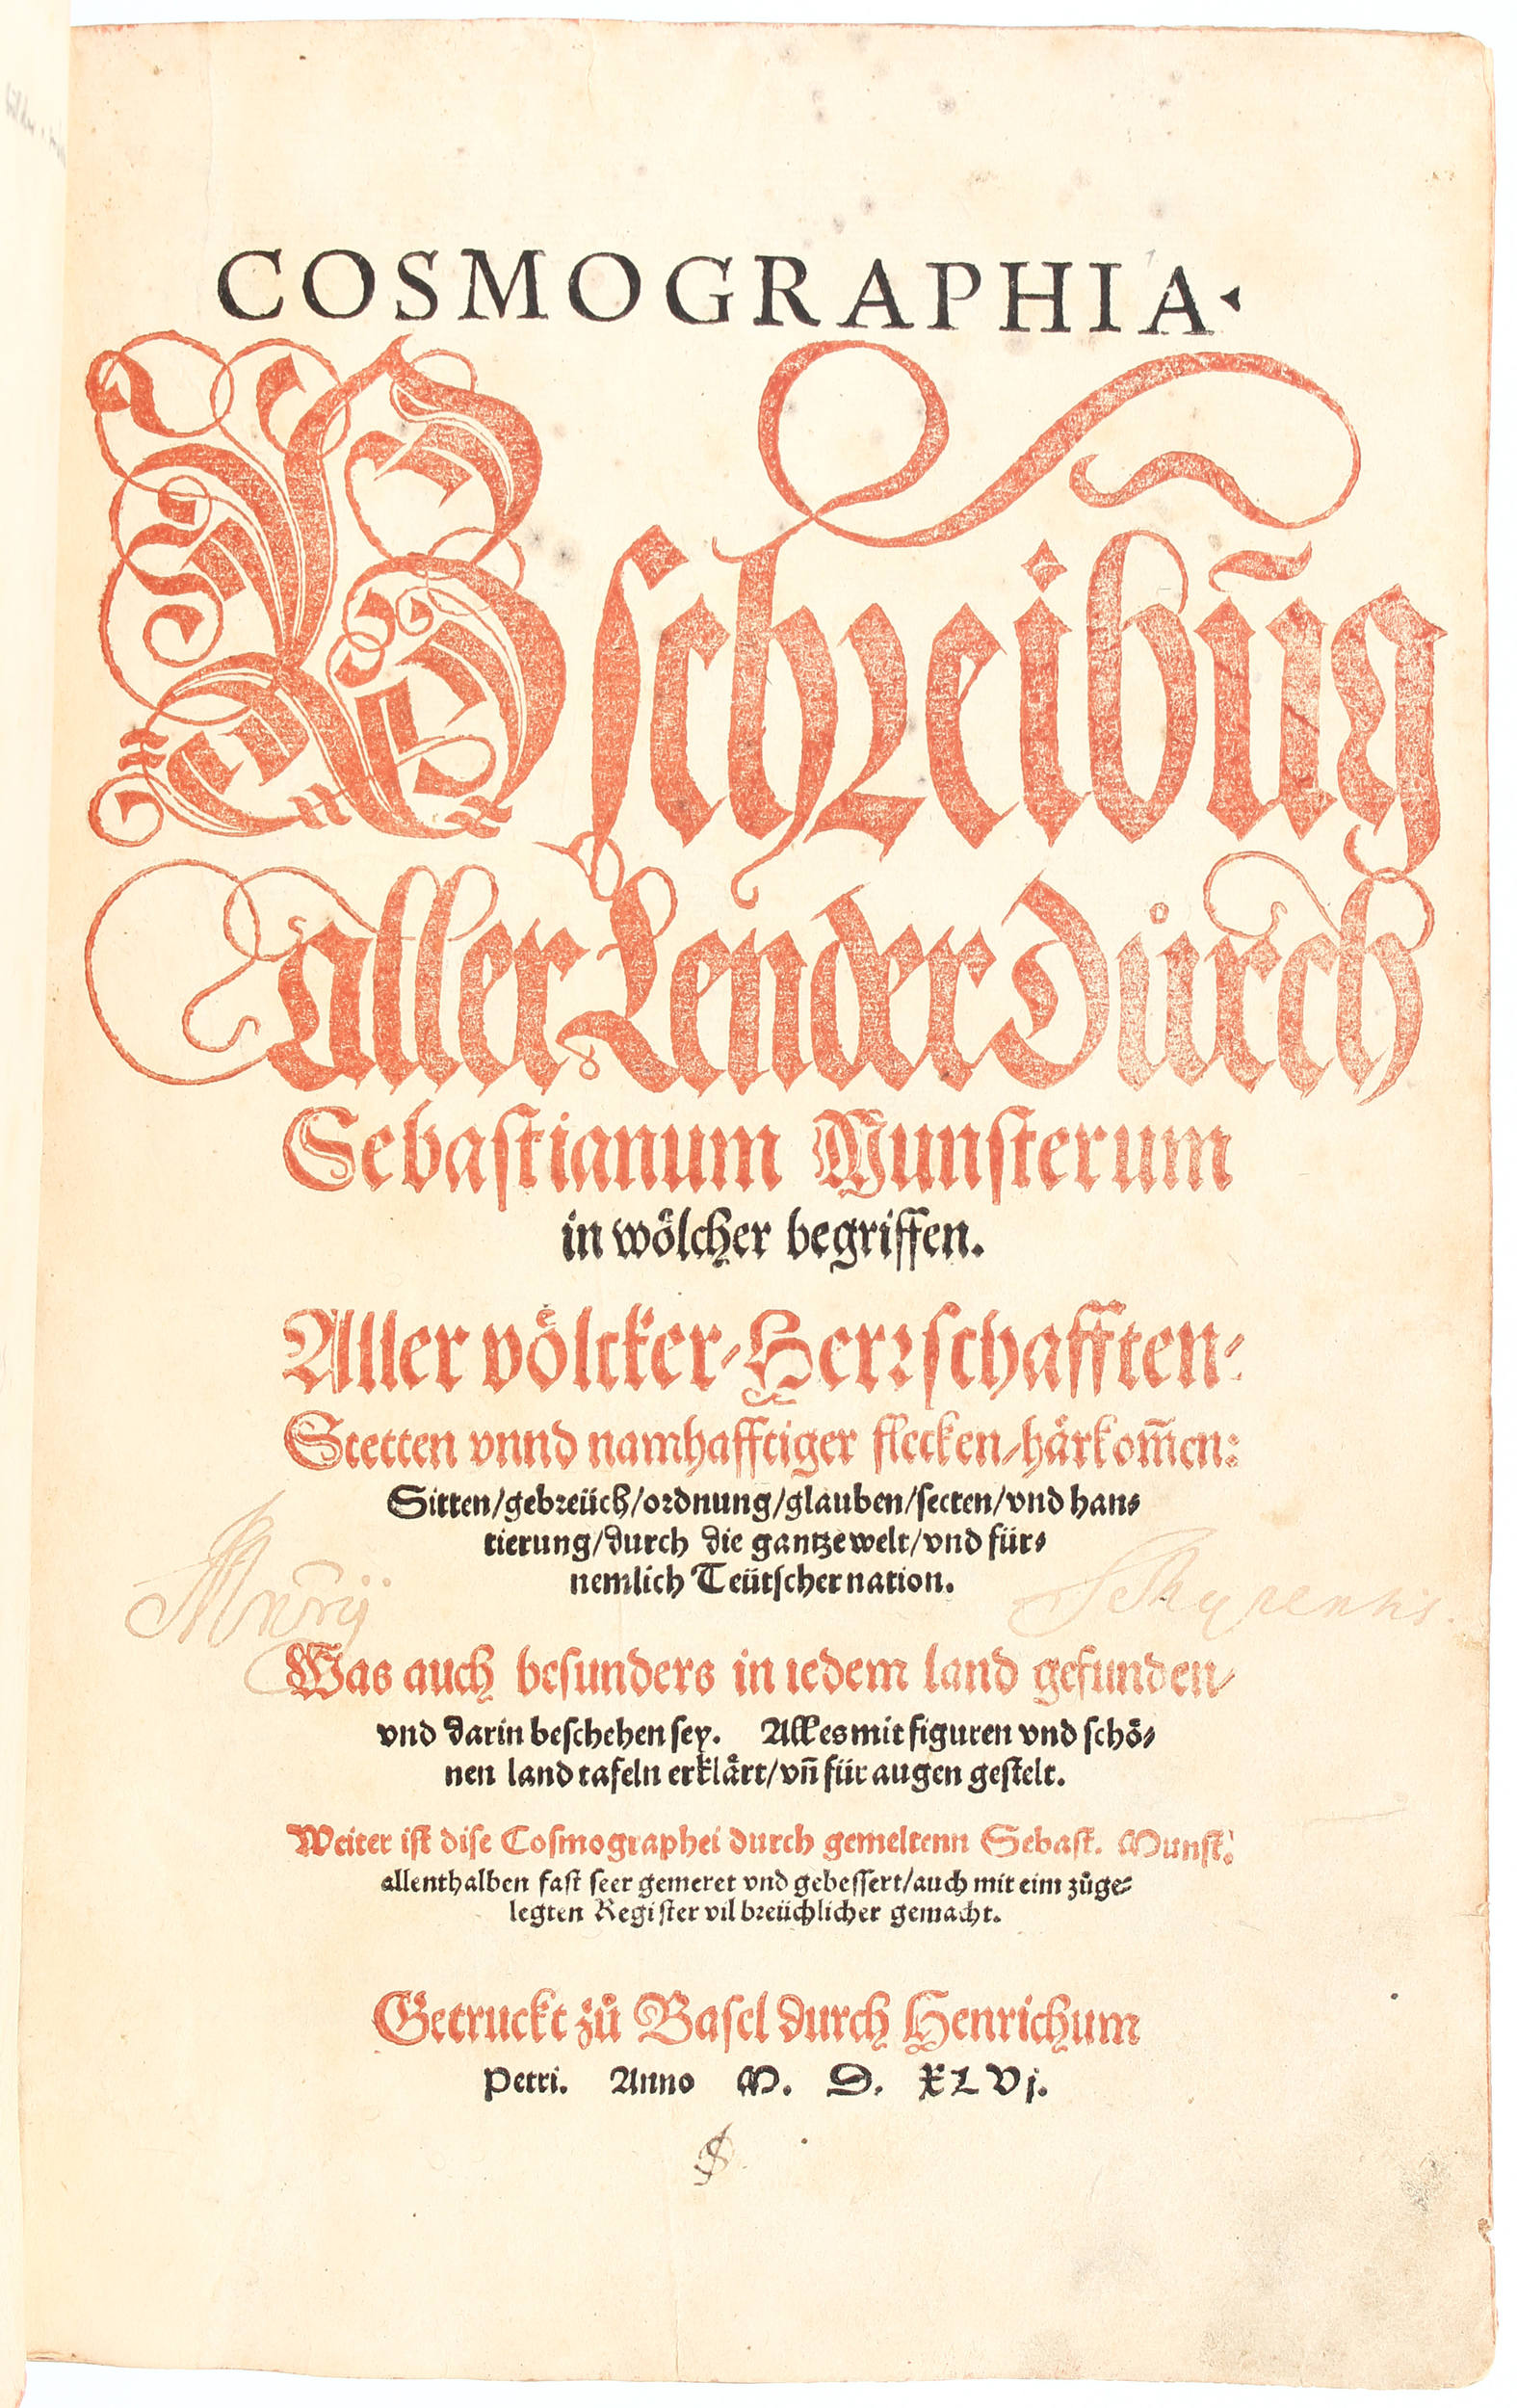 COSMOGRAPHIA.
Bschreibũg
aller Lender Důrch
Sebastianum Munsterum
in wölcher begriffen.
Aller völcker/ Herrschafften/
Stetten vnnd namhafftiger flecken/ härkom̃en:
Sitten/gebreüch/ordnung/glauben/secten/vnd han-
tierung/durch die gantze welt/vnd für-
nemlich Teütscher nation.
Was auch besunders in iedem land gefunden/
vnd darin beschehen sey. Alles mit figuren vnd schö-
nen land tafeln erklärt/vñ für augen gestelt.
Weiter ist dise Cosmographei durch gemeltenn Sebast. Munst.
allenthalben fast seer gemeret vnd gebessert/auch mit eim zůge-
legten Register vil breüchlicher gemacht.
Getruckt zů Basel durch Henrichum
Petri. Anno M. D. XLVj.